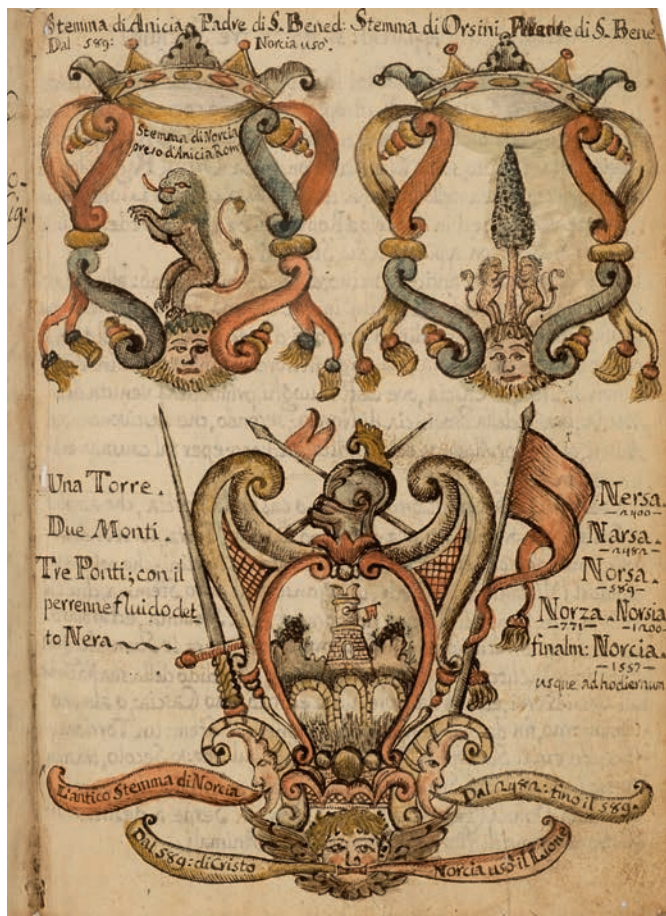 Stemma di Anicia Padre di S. Bened: Stemma di Orsini, Parente di S. Bene
Dal 589: Norcia uso'.
Stemma di Norcia
preso d'Anicia Rom
Una Torre.
Due Monti.
Tre Ponti; con il
perrenne fluido det-
to Nera
Nersa.
2400
Narsa.
2482
Norsa.
589
Norza. Norsia
771 1200
finalm: Norcia.
1557
usque ad hodiernum
L'antico Stemma di Norcia
Dal 2482: fino il 589.
Dal 589: di Cristo
Norcia usò il Lione